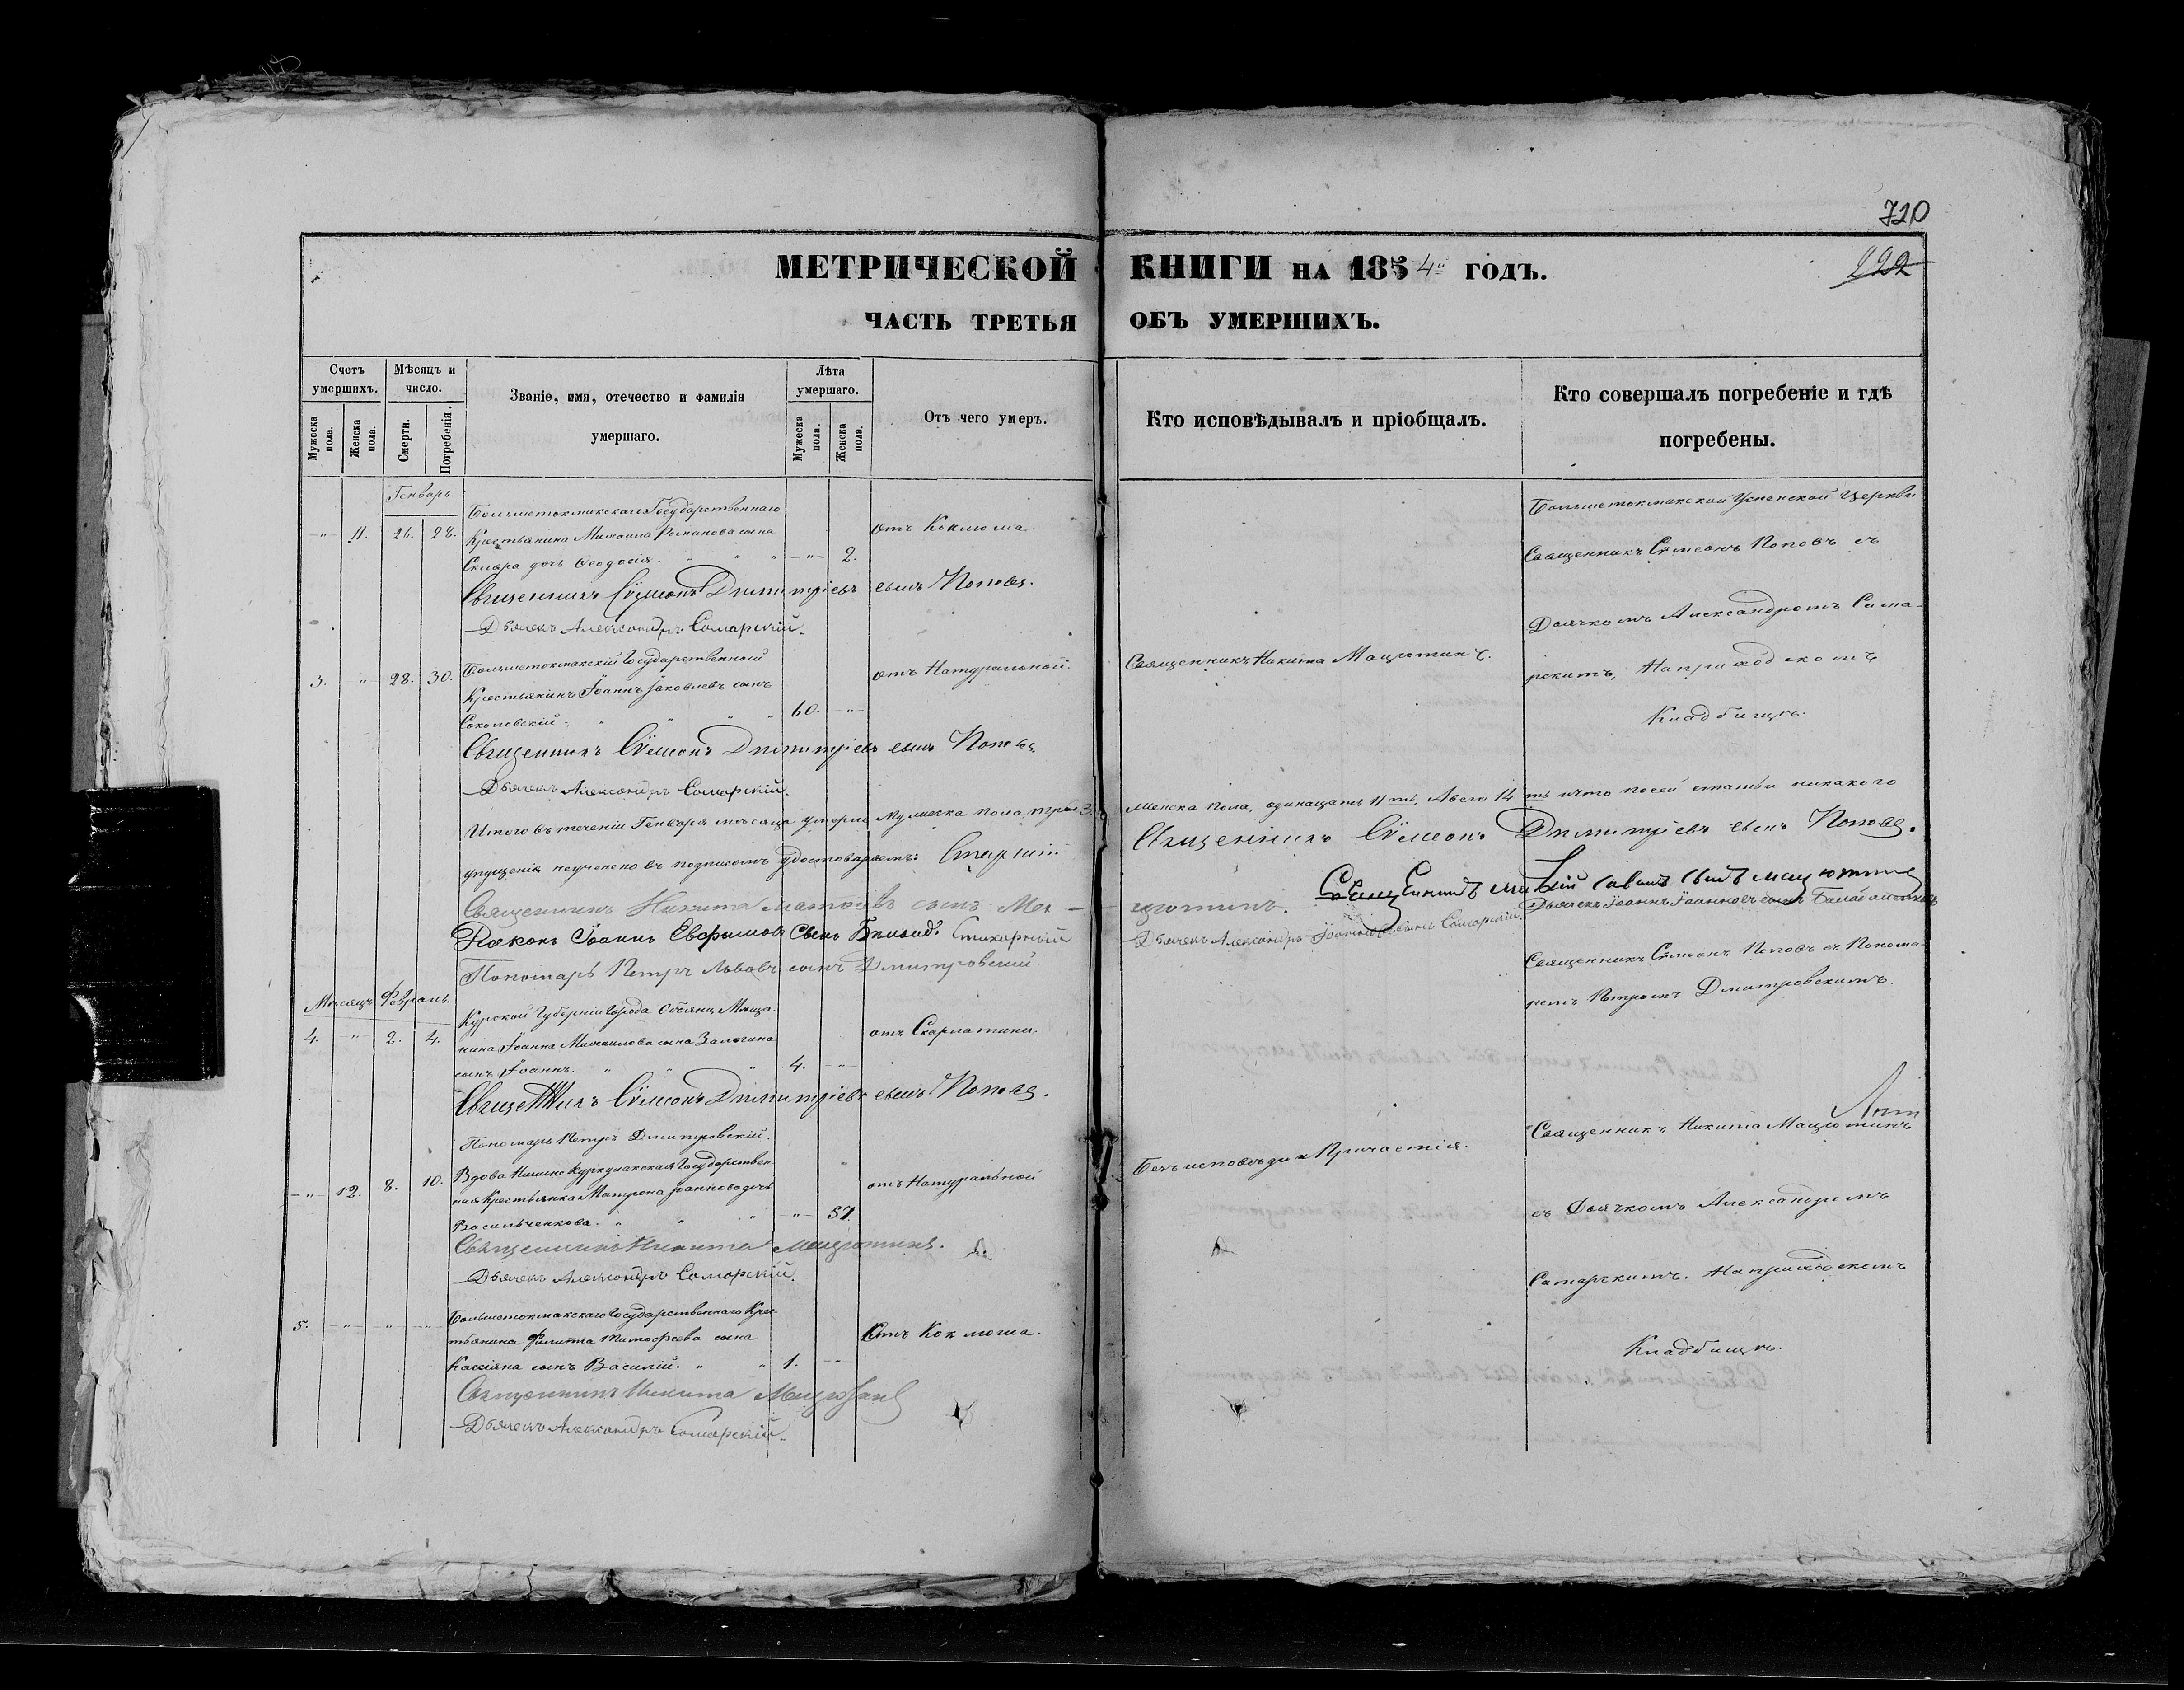 720
222
МЕТРИЧЕСКОЙ КНИГИ НА 1854й ГОДЪ.
ЧАСТЬ ТРЕТЬЯ ОБЪ УМЕРШИХЪ.
Счетъ умершихъ.
Мужоска пола.
Женска пола.
Мѣсяцъ и число.
Смерти.
Погребенія.
Званіе, имя, отечество и фамилія умершаго.
Лѣта умершаго.
Мужеска пола.
Женска пола.
Отъ чего умеръ.
Кто исповѣдывалъ и пріобщалъ.
Кто совершалъ погребеніе и гдѣ погребены.
Генварь.
Большетокмакскаго Государственнаго
-"- 11. 26. 28. Крестьянина Михаила Романова сына отъ Коклюша.
Скляра дочь Феодосія. " " " -"- 2.
Большетокмакской Успенской Церкви
Священникъ Сѵмеонъ Поповъ съ
Дьячкомъ Александромъ Сама-
рскимъ, На приходскомъ
Кладбищѣ.
Священникъ Сѵмеонъ Димитріевъ сынъ Поповъ.
Дьячекъ Александръ Самарскій.
Большетокмакскій Государственный
3. " 28. 30. Крестьянинъ Іоаннъ Іаковлевъ сынъ отъ Натуральной. Священникъ Никита Мацютинъ.
Соколовскій. " " " " 60. -"-
Священникъ Сѵмеонъ Димитріевъ сынъ Поповъ.
Дьячекъ Александръ Самарскій.
Итого въ теченіи Генваря мѣсяца умерло мужеска пола, три 3. женска пола, одинацать 11ть, Авсего 14ть ичто посей статьи никакого
упущенія неучинено въ подписомъ удостовѣряемъ: Старшій Священникъ Сѵмеонъ Димитріевъ сынъ Поповъ.
Священникъ Никита Матвѣевъ сынъ Ма- цютинъ.
Дьяконъ Іоаннъ Евфимовъ Сынъ Стихарный Дьячекъ Александръ Іоанновъ сынъ Самарскій. Дьячекъ Іоаннъ Іоанновъ сынъ
Пономарь Петръ Львовъ сынъ Дмитровскій.
Священникъ Сѵмеонъ Поповъ съ Понома-
ремъ Петромъ Дмитровскимъ.
Мѣсяцъ Февраль.
Курской Губерніи города Обояни Мѣща-
4. -"- 2. 4. нина Іоанна Михаилова сына Залогина отъ Скарлатины.
сынъ Іоаннъ. " " " 4. -"-
Священникъ Сѵмеонъ Димитріевъ сынъ Поповъ.
Пономарь Петръ Дмитровскій.
Вдова Государствен-
-"- 12. 8. 10. ная Крестьянка Матрона Іоаннова дочь отъ Натуральной Безъ исповѣди и Причастія.
Васильченкова. " " " -"- 57.
Священникъ Никита Мацютинъ
съ Дьячкомъ Александромъ
Самарскимъ. На приходскомъ
Кладбищѣ.
Священникъ Никита Мацютинъ.
Дьячекъ Александръ Самарскій.
Большетокмакскаго Государственнаго Крес-
5. -"- " -"- тьянина Филиппа Тимофеева сына Отъ Коклюша.
Кассіяна сынъ Василій. " " 1. -"-
Священникъ Никита Мацютинъ
Дьячекъ Александръ Самарскій.